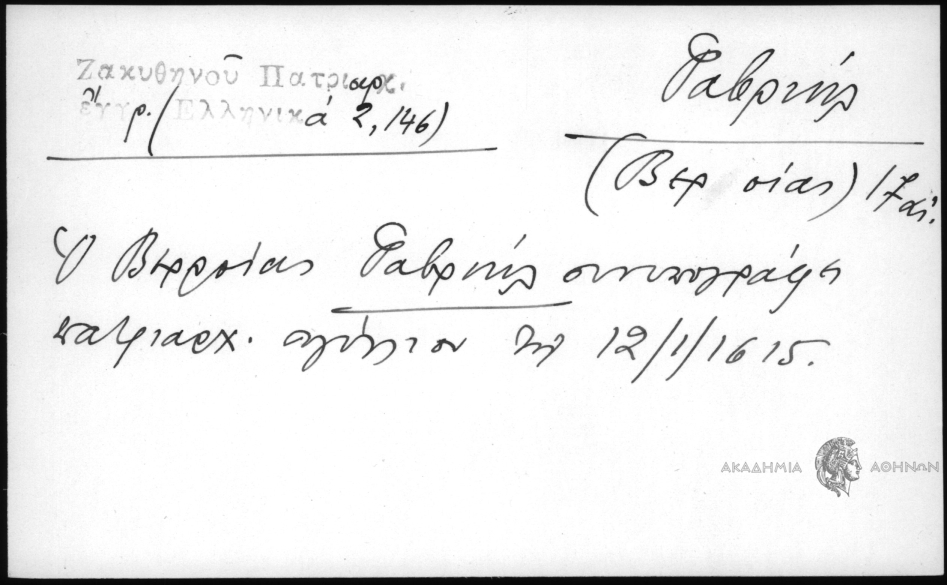 Ζακυθηνοῦ Πατριαρχ.
ἔγγρ. (Ἑλληνικά 2, 146)
Γαβριήλ
(Βερροίας) 17 αἰ.
Ὁ Βερροίας Γαβριήλ συνυπογράφει
πατριαρχ. σιγίλλιον τῇ 12/1/1615.
ΑΚΑΔΗΜΙΑ ΑΘΗΝΩΝ